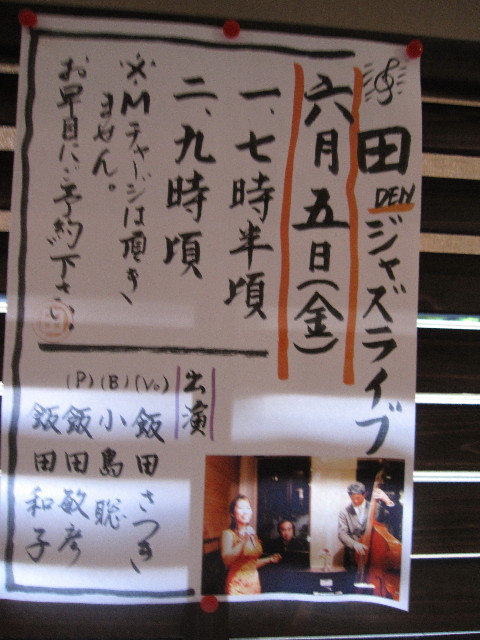 田DENジャズライブ
六月五日(金)
一、七時半頃
二、九時頃
※Mチャージは頂き
ません。
お早目にご予約下さい。
出演
(Vo) 飯田さつき
(B) 小島聡
(P) 飯田敏彦
飯田和子